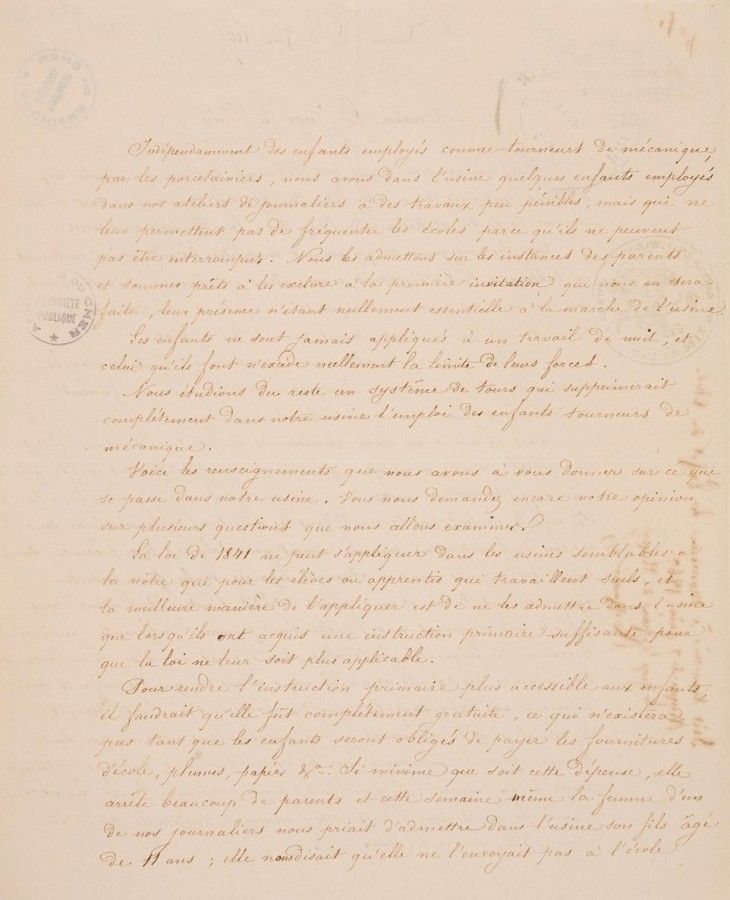 Indépendamment des enfants employés comme tourneurs de mécanique,
par les porcelainiers, nous avons dans l'usine quelques enfants employés
dans nos ateliers de journaliers à des travaux peu pénibles, mais qui ne
leur permettent pas de fréquenter les écoles parce qu'ils ne peuvent
pas être interrompus. Nous les admettons sur les instances des parents
et sommes prêts à les exclure à la première invitation qui nous en sera
faite, leur présence n'étant nullement essentielle à la marche de l'usine.
Ces enfants ne sont jamais appliqués à un travail de nuit, et
celui qu'ils font n'excède nullement la limite de leurs forces.
Nous étudions du reste un système de tours qui supprimerait
complètement dans notre usine l'emploi des enfants tourneurs de
mécanique.
Voici les renseignements que nous avons à vous donner sur ce qui
se passe dans notre usine. Vous nous demandez encore notre opinion
sur plusieurs questions que nous allons examiner.
La loi de 1841 ne peut s'appliquer dans les usines semblables à
la nôtre que pour les élèves ou apprentis qui travaillent seuls, et
la meilleure manière de l'appliquer est de ne les admettre dans l'usine
que lorsqu'ils ont acquis une instruction primaire suffisante pour
que la loi ne leur soit plus applicable.
Pour rendre l'instruction primaire plus accessible aux enfants,
il faudrait qu'elle fût complètement gratuite, ce qui n'existera
pas tant que les enfants seront obligés de payer les fournitures
d'école, plumes, papier &a. Si minime que soit cette dépense, elle
arrête beaucoup de parents et cette semaine même la femme d'un
de nos journaliers nous priait d'admettre dans l'usine son fils âgé
de 11 ans ; elle nous disait qu'elle ne l'envoyait pas à l'école
DU CHER
PROPRIÉTÉ
PUBLIQUE